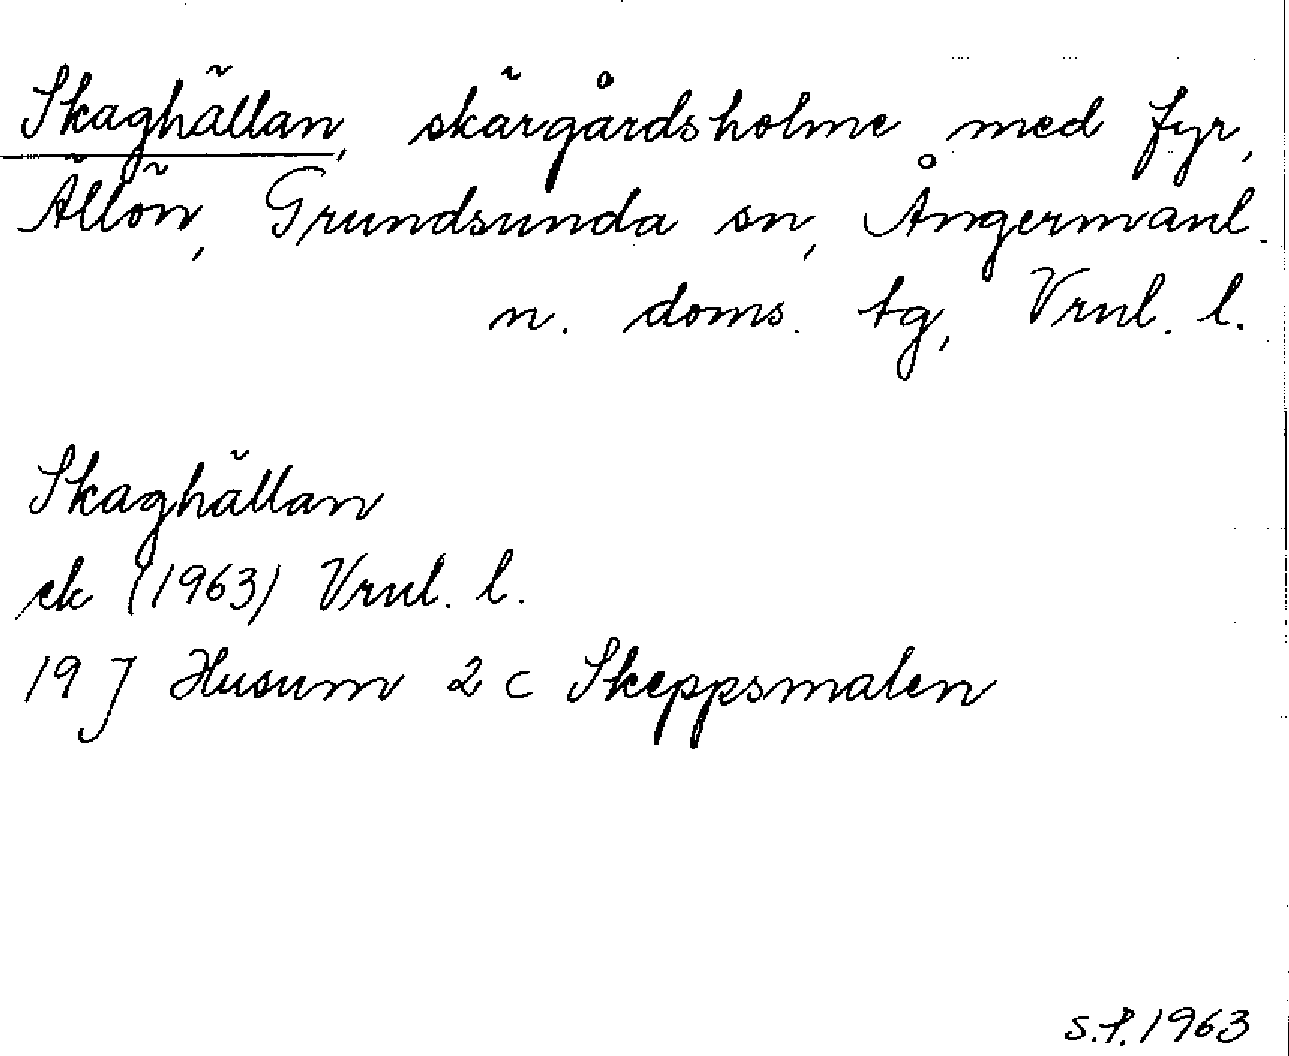 Skaghällan, skärgårdsholme med fyr,
Ällön, Grundsunda sn, Ångermanl.
n. doms. tg, Vrnl. l.
Skaghällan
ek (1963) Vrnl. l.
19 J Husum 2 c Skeppsmalen
S.P. 1963